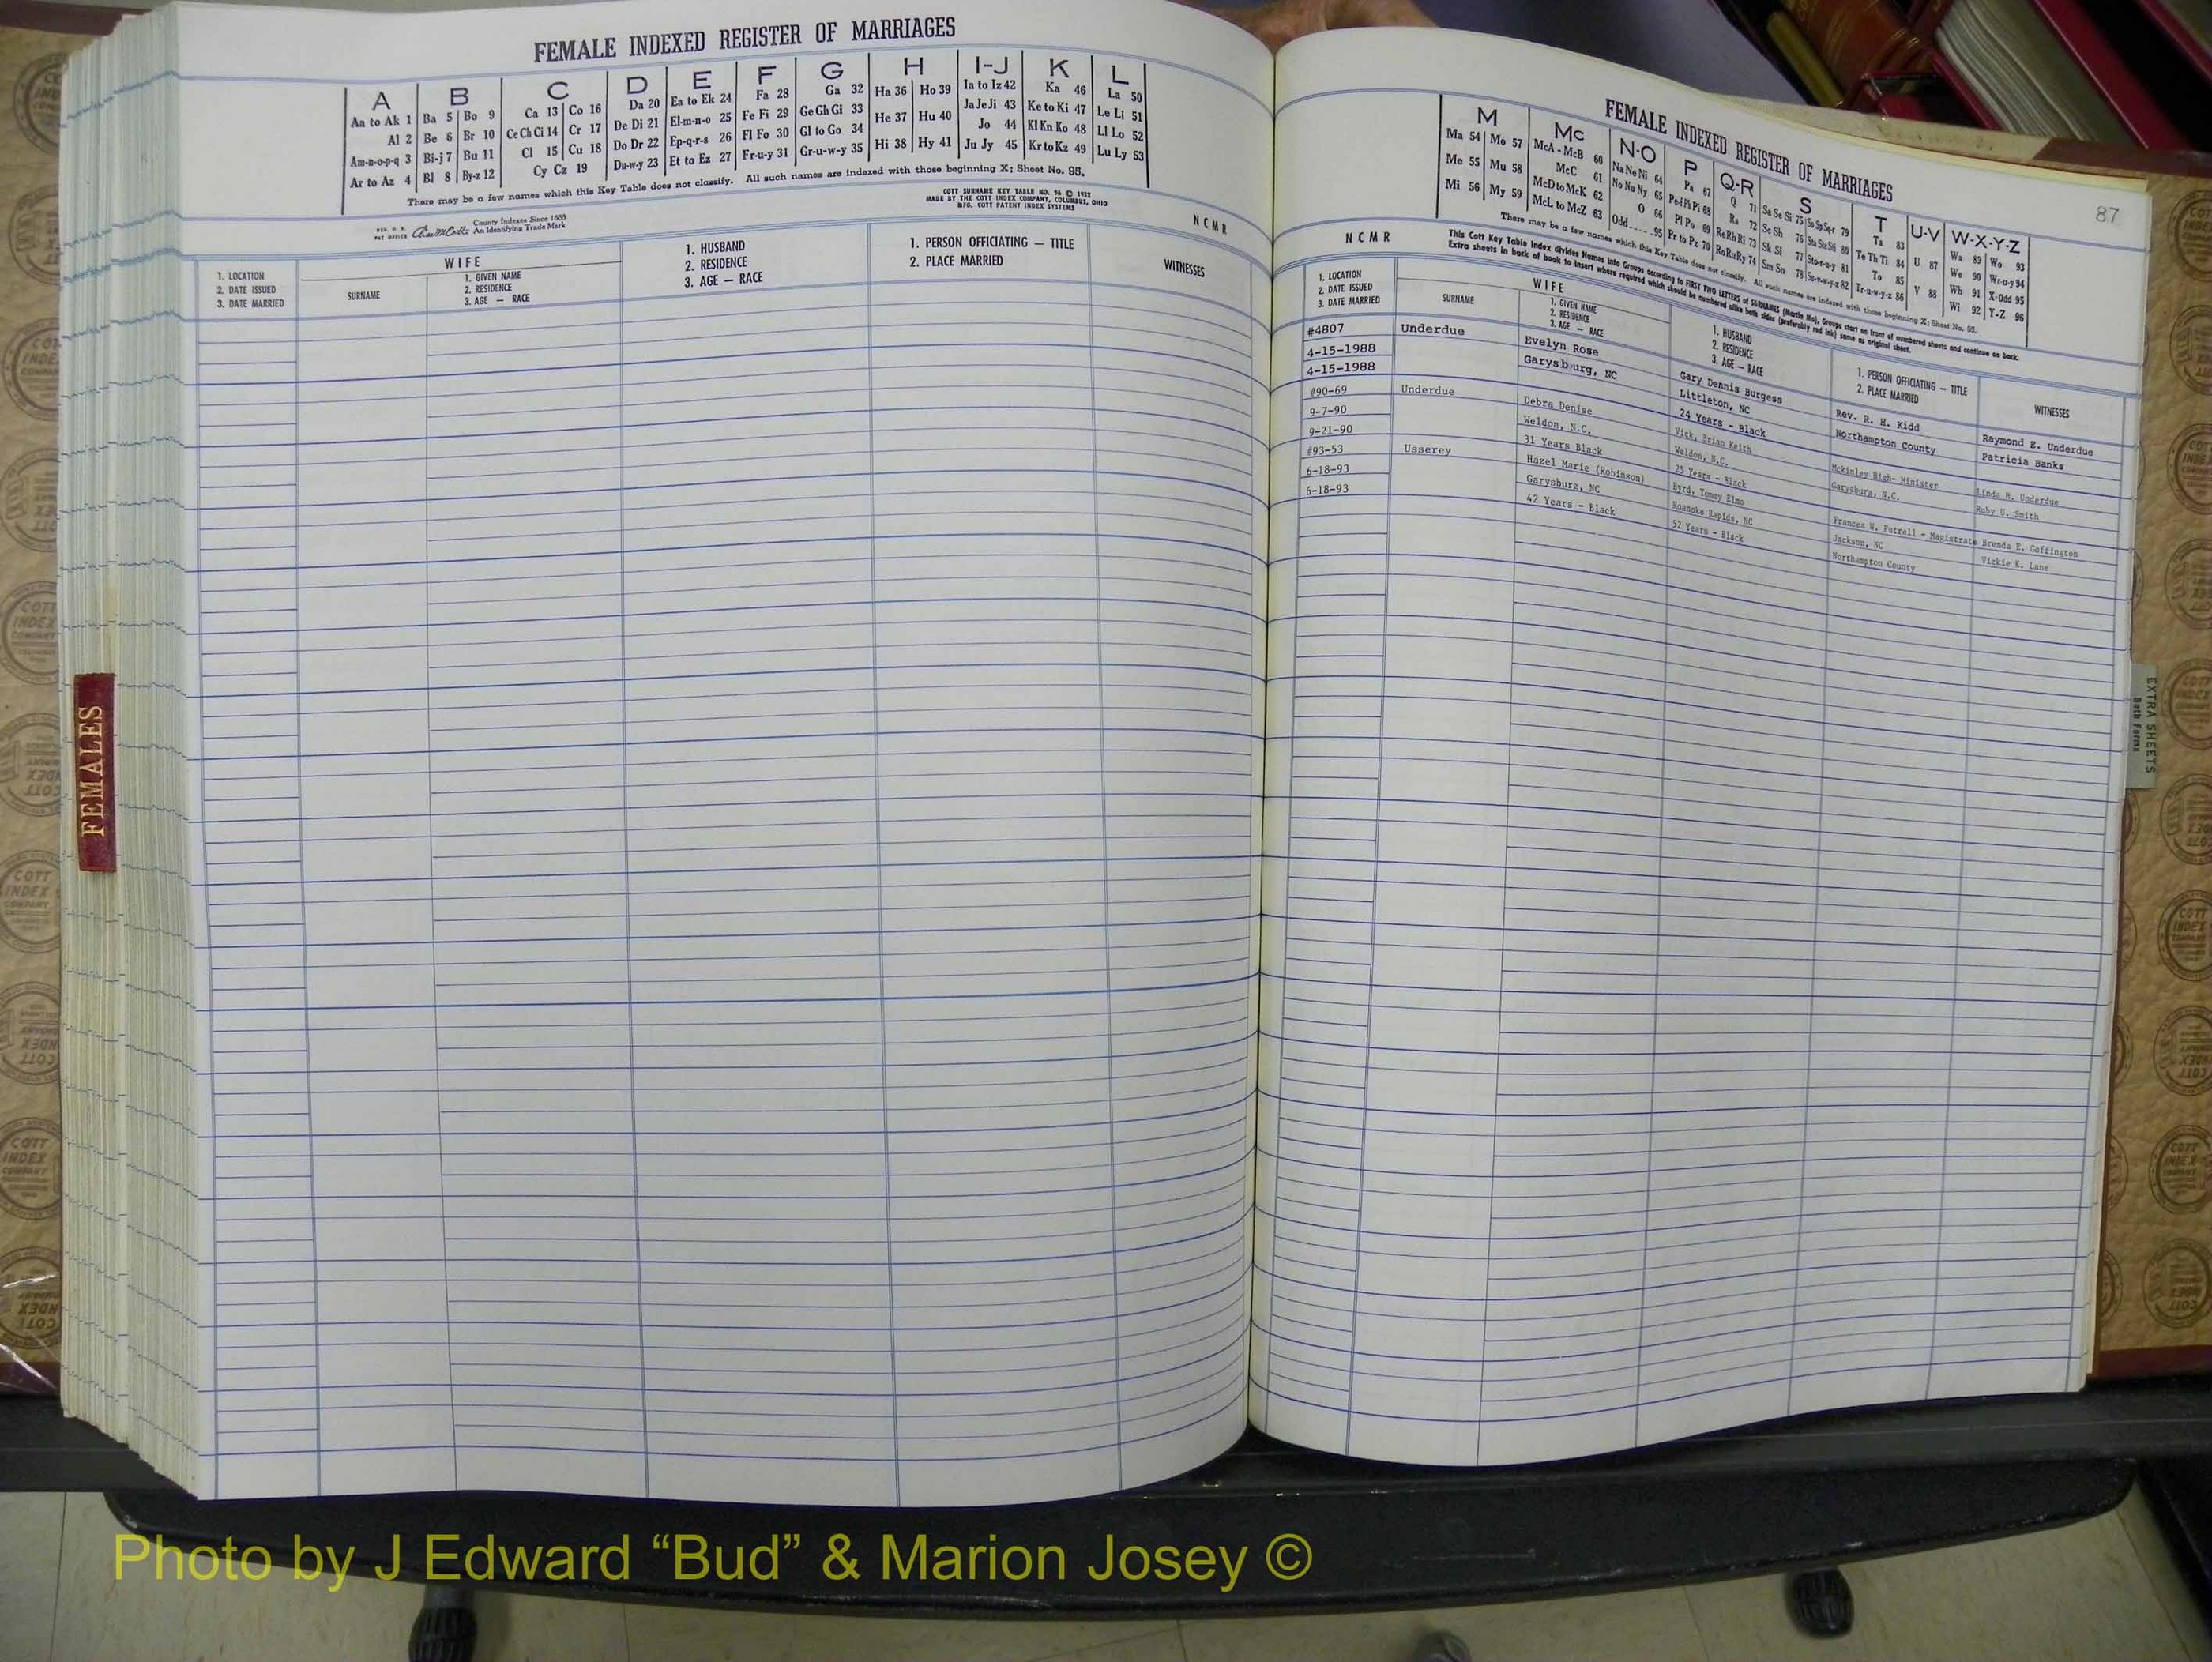 FEMALE INDEXED REGISTER OF MARRIAGES
A B C D E F G H I-J K L
Aa to Ak 1 Ba 5 Bo 9 Ca 13 Co 16 Da 20 Ea to Ek 24 Fa 28 Ga 32 Ha 36 Ho 39 Ia to Iz 42 Ka 46 La 50
Al 2 Be 6 Br 10 Ce Ch Ci 14 Cr 17 De Di 21 El-m-n-o 25 Fe Fi 29 Ge Gh Gi 33 He 37 Hu 40 Ja Je Ji 43 Ke to Ki 47 Le Li 51
Am-n-o-p-q 3 Bi-j 7 Bu 11 Cl 15 Cu 18 Do Dr 22 Ep-q-r-s 26 Fl Fo 30 Gl to Go 34 Hi 38 Hy 41 Jo 44 Kl Kn Ko 48 Ll Lo 52
Ar to Az 4 Bl 8 By-z 12 Cy Cz 19 Du-w-y 23 Et to Ez 27 Fr-u-y 31 Gr-u-w-y 35 Ju Jy 45 Kr to Kz 49 Lu Ly 53
There may be a few names which this Key Table does not classify. All such names are indexed with those beginning X; Sheet No. 95.
COTT SURNAME KEY TABLE NO. 96 © 1952
MADE BY THE COTT INDEX COMPANY, COLUMBUS, OHIO
MFG. COTT PATENT INDEX SYSTEMS
REG. U. S. PAT OFFICE
County Indexes Since 1888
An Identifying Trade Mark
N C M R
1. LOCATION
2. DATE ISSUED
3. DATE MARRIED
WIFE
SURNAME
1. GIVEN NAME
2. RESIDENCE
3. AGE — RACE
1. HUSBAND
2. RESIDENCE
3. AGE — RACE
1. PERSON OFFICIATING — TITLE
2. PLACE MARRIED
WITNESSES
FEMALES
FEMALE INDEXED REGISTER OF MARRIAGES
87
M Mc N-O P Q-R S T U-V W-X-Y-Z
Ma 54 Mo 57 McA - McB 60 Na Ne Ni 64 Pa 67 Q 71 Sa Se Si 75 So Sp Sq-r 79 Ta 83 U 87 Wa 89 Wo 93
Me 55 Mu 58 McC 61 No Nu Ny 65 Pe-f Ph Pi 68 Ra 72 Sc Sh 76 Sta Ste Sti 80 Te Th Ti 84 V 88 We 90 Wr-u-y 94
Mi 56 My 59 McD to McK 62 O 66 Pl Po 69 Re Rh Ri 73 Sk Sl 77 Sto-r-u-y 81 To 85 Wh 91 X-Odd 95
McL to McZ 63 Odd.....95 Pr to Pz 70 Ro Ru Ry 74 Sm Sn 78 Su-v-w-y-z 82 Tr-u-w-y-z 86 Wi 92 Y-Z 96
There may be a few names which this Key Table does not classify. All such names are indexed with those beginning X; Sheet No. 95.
This Cott Key Table Index divides Names into Groups according to FIRST TWO LETTERS of SURNAMES (Martin Ma). Groups start on front of numbered sheets and continue on back.
Extra sheets in back of book to insert where required which should be numbered alike both sides (preferably red ink) same as original sheet.
N C M R
1. LOCATION
2. DATE ISSUED
3. DATE MARRIED
WIFE
SURNAME
1. GIVEN NAME
2. RESIDENCE
3. AGE — RACE
1. HUSBAND
2. RESIDENCE
3. AGE — RACE
1. PERSON OFFICIATING — TITLE
2. PLACE MARRIED
WITNESSES
#4807 Underdue Evelyn Rose Gary Dennis Burgess Rev. R. H. Kidd Raymond E. Underdue
4-15-1988 Garysburg, NC Littleton, NC Northampton County Patricia Banks
4-15-1988 24 Years - Black
#90-69 Underdue Debra Denise Vick, Brian Keith Mckinley High- Minister Linda H. Underdue
9-7-90 Weldon, N.C. Weldon, N.C. Garysburg, N.C. Ruby U. Smith
9-21-90 31 Years Black 25 Years - Black
#93-53 Usserey Hazel Marie (Robinson) Byrd, Tommy Elmo Frances W. Futrell - Magistrate Brenda E. Goffington
6-18-93 Garysburg, NC Roanoke Rapids, NC Jackson, NC Vickie K. Lane
6-18-93 42 Years - Black 52 Years - Black Northampton County
EXTRA SHEETS
Both Forms
COTT INDEX COMPANY
Photo by J Edward “Bud” & Marion Josey ©